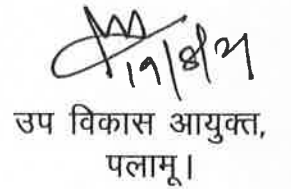 19/8/21
उप विकास आयुक्त,
पलामू।